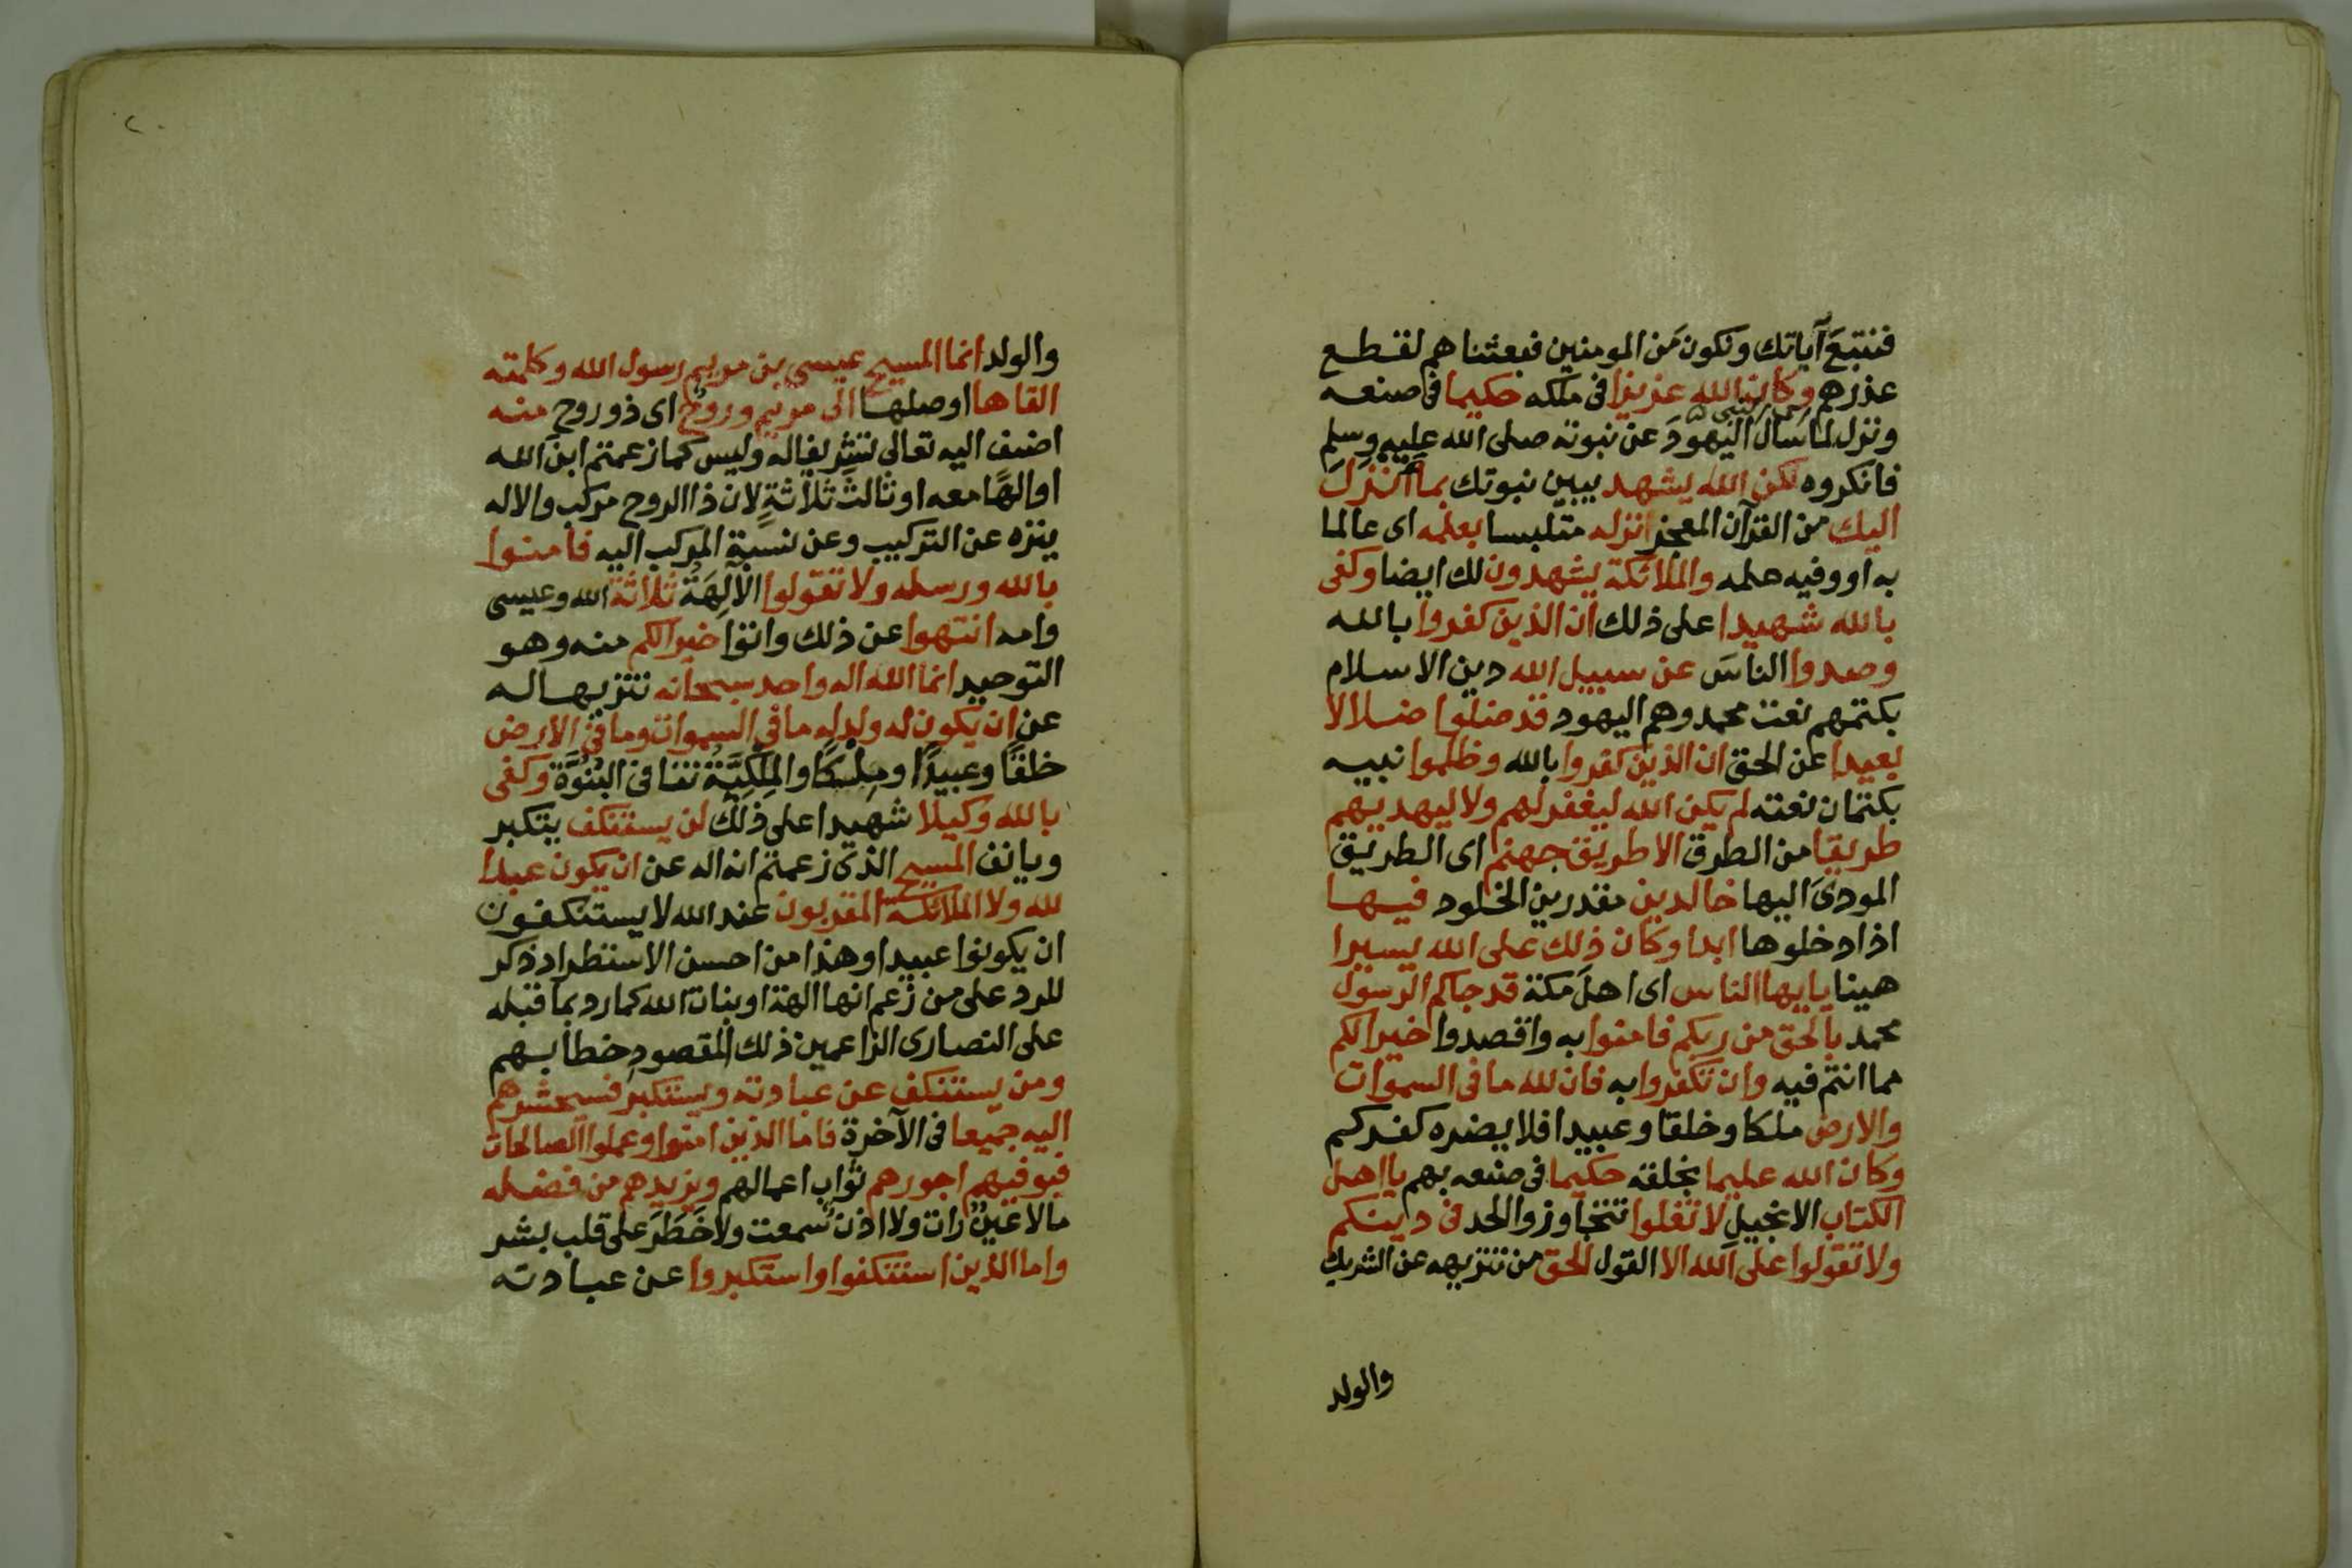 فنتبعَ آياتك ونكون مَن المومنين فبعثناهم لقطع
عذرهم وكان الله عزيزا فى ملكه حكيما فى صنعه
ونزل لما سال اليهودَ عن نبوته صلى الله عليه وسلم
فانكروه لكن الله يشهد يبين نبوتك بما أنزل
اليك من القرآن المعجز انزله متلبسا بعلمه اى عالما
به او وفيه علمه والملائكة يشهدون لك ايضا وكفى
بالله شهيدا على ذلك ان الذين كفروا بالله
وصدوا الناسَ عن سبيل الله دين الاسلام
بكتمهم نعت محمد وهم اليهود قد ضلوا ضلالا
بعيدا عن الحق ان الذين كفروا بالله وظلموا نبيه
بكتمان نعته لم يكن الله ليغفر لهم ولا ليهديهم
طريقا من الطرق الا طريق جهنم اى الطريق
المودى اليها خالدين مقدرين الخلود فيها
اذا دخلوها ابدا وكان ذلك على الله يسيرا
هينا يايها الناس اى اهل مكة قد جاكم الرسول
محمد بالحق من ربكم فامنوا به واقصدوا خيرا لكم
مما انتم فيه وان تكفروا به فان لله ما فى السموات
والارض ملكا وخلقا وعبيدا فلا يضره كفركم
وكان الله عليما بخلقه حكيما فى صنعه بهم يااهل
الكتاب الانجيل لا تغلوا تتجاوزوا الحد فى دينكم
ولا تقولوا على الله الا القول الحق من تنزيهه عن الشريك
والولد
والولد انما المسيح عيسى بن مريم رسول الله وكلمته
القاها اوصلها الى مريم وروحٌ اى ذو روح منه
اضيف اليه تعالى تشريفا له وليس كما زعمتم ابنَ الله
او الهًا معه او ثالثَ ثلاثةٍ لان ذا الروح مركب والاله
ينزه عن التركيب وعن نسبة المركب اليه فامنوا
بالله ورسله ولا تقولوا الآلِهَةُ ثلاثة الله وعيسى
وامه انتهوا عن ذلك واتوا خيرا لكم منه وهو
التوحيد انما الله اله واحد سبحانه تنزيها له
عن ان يكون له ولد له ما فى السموات وما فى الارض
خلقًا وعبيدًا ومِلْكًا والمِلْكِيَّةُ تنافى البُنُوَّةَ وكفى
بالله وكيلا شهيدا على ذلك لن يستنكف يتكبر
ويانف المسيح الذى زعمتم انه اله عن ان يكون عبدا
لله ولا الملائكة المقربون عند الله لا يستنكفون
ان يكونوا عبيدا وهذا من احسن الاستطراد ذكر
للرد على من زعم انها الهة او بنات الله كما رد بما قبله
على النصارى الزاعمين ذلك المقصودِ خطابهم
ومن يستنكف عن عبادته ويستكبر فسيحشرهم
اليه جميعا فى الآخرة فاما الذين امنوا وعملوا الصالحات
فيوفيهم اجورهم ثواب اعمالهم ويزيدهم من فضله
مالا عينٌ رات ولا اذن سمعت ولا خَطَرَ على قلب بشر
واما الذين استنكفوا واستكبروا عن عبادته